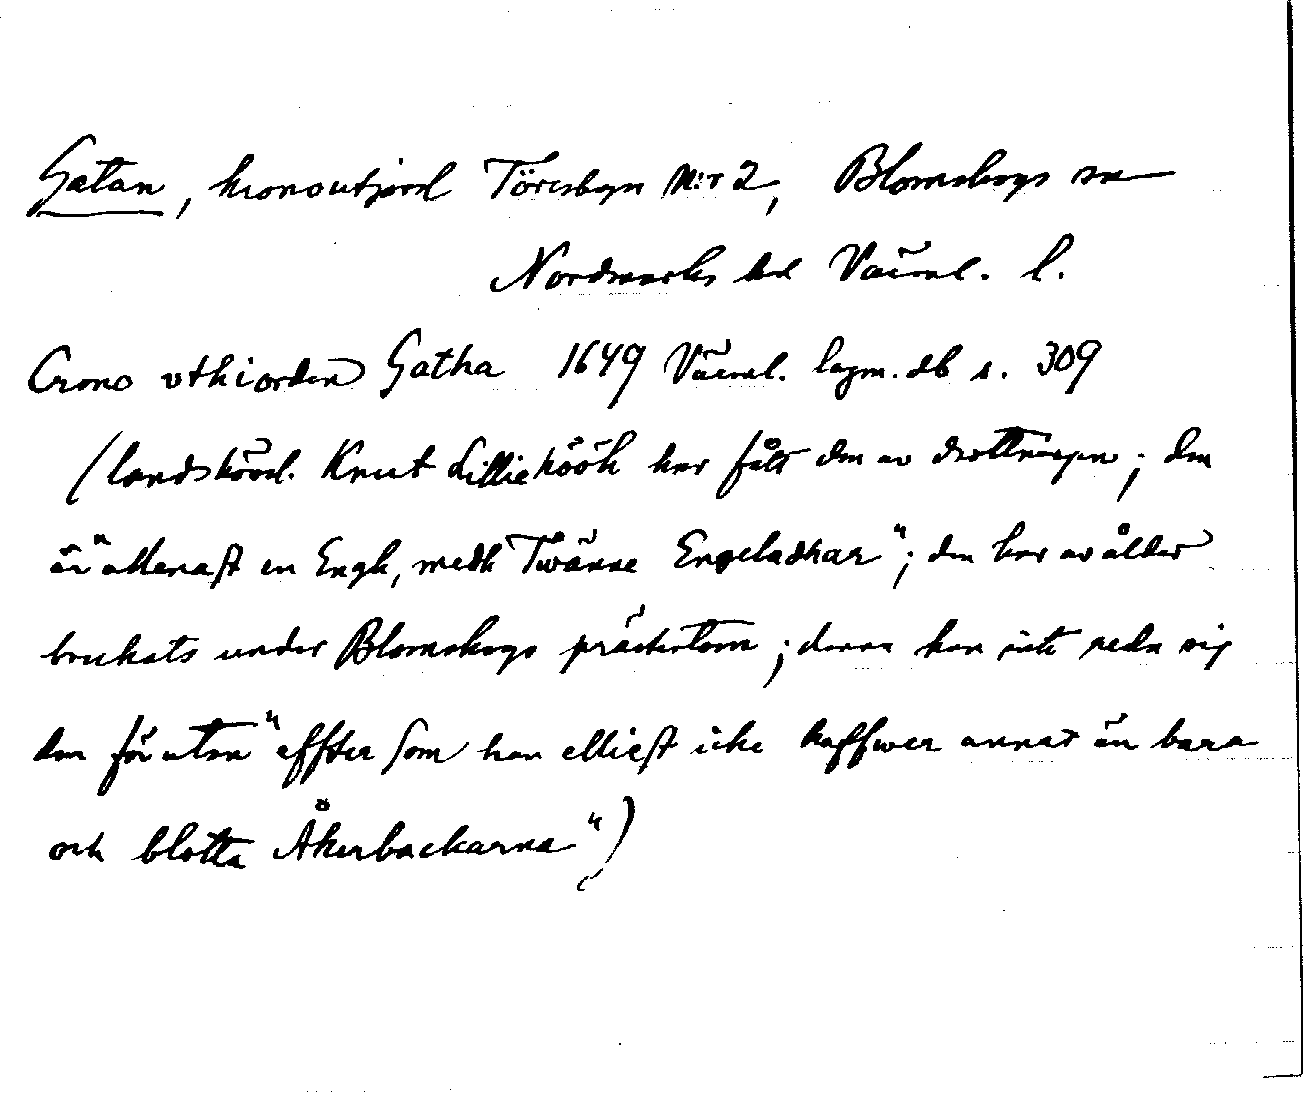 Gatan, kronoutjord Töresbyn N:r 2, Blomskogs sn
Nordmarks hd Värml. l.
Crono vthiorden Gatha 1649 Värml. lagm. db s. 309
(landshövd. Knut Lilliehöök har fått den av drottningen; den
är "allenast en Engh, medh Twänne Engeladhar"; den har av ålder
brukats under Blomskogs prästetom; denne kan inte reda sig
den förutan "effter som han elliest icke haffwer annat än bara
och blotta Åkerbackarna")